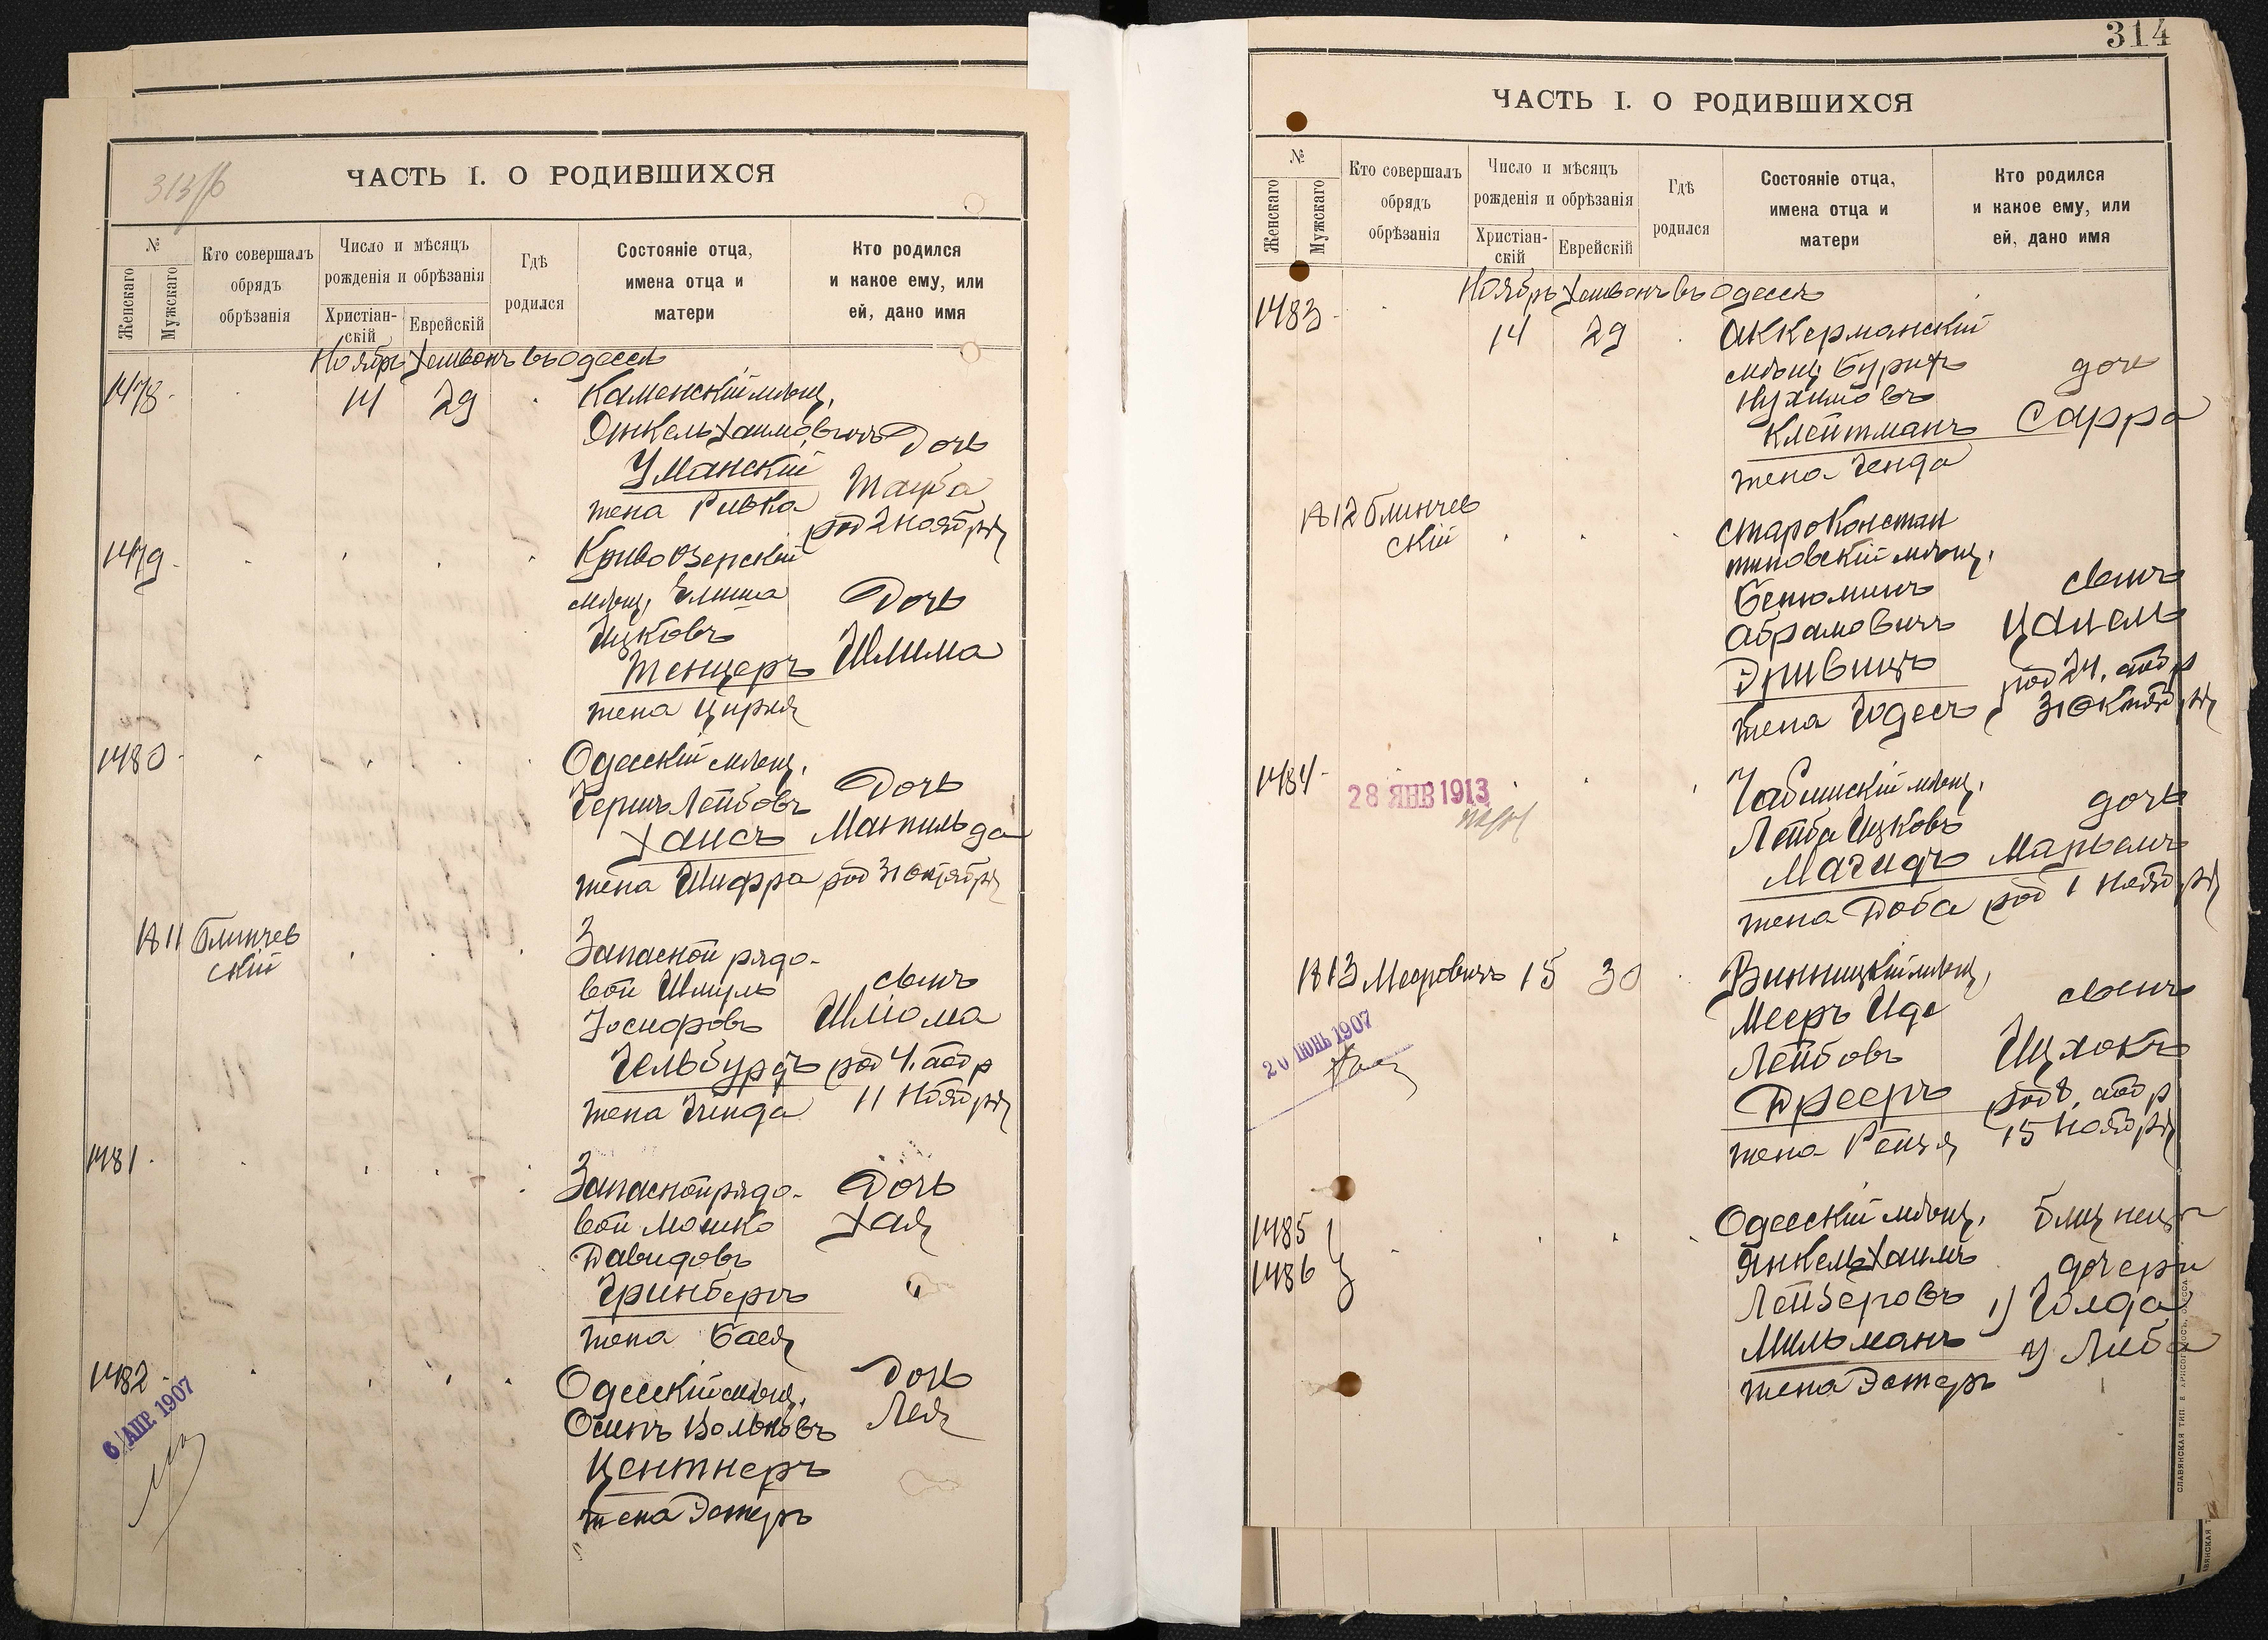 313/б
ЧАСТЬ I. О РОДИВШИХСЯ
№
Женскаго
Мужскаго
Кто совершалъ
обрядъ
обрѣзанія
Число и мѣсяцъ
рожденія и обрѣзанія
Христіан-
скій
Еврейскій
Гдѣ
родился
Состояніе отца,
имена отца и
матери
Кто родился
и какое ему, или
ей, дано имя
Ноябрь Хешвонъ въ Одессѣ
1478 14 29 Каменскій мѣщ.
Янкель Хаимовичъ Дочь
Уманскій
жена Ривка Тауба
род 2 ноября
1479 Кривоозерскій
мѣщ. Элиша Дочь
Ицковъ
Тенцеръ Шлима
жена Цирля
1480 Одесскій мѣщ.
Гершъ Лейбовъ Дочь
Хаисъ Матильда
жена Шифра род 31 октября
1811 Блинчев
скій
Запасной рядо-
вой Шмуль сынъ
Іосифовъ Шліома
Гельбурдъ род 4. аобр
жена Гинда 11 Ноября
1481 Запасной рядо- Дочь
вой Мошко Хая
Давидовъ
Гринбергъ
жена Бася
1482 Одесскій мѣщ. Дочь
Осипъ Вольковъ Лея
Центнеръ
жена Эстеръ
6 АПР. 1907
314
ЧАСТЬ I. О РОДИВШИХСЯ
№
Женскаго
Мужскаго
Кто совершалъ
обрядъ
обрѣзанія
Число и мѣсяцъ
рожденія и обрѣзанія
Христіан-
скій
Еврейскій
Гдѣ
родился
Состояніе отца,
имена отца и
матери
Кто родился
и какое ему, или
ей, дано имя
Ноябрь Хешвонъ въ Одессѣ
1483 14 29 Аккерманскій
мѣщ. Бурихъ дочь
Нухимовъ
Клейтманъ Сарра
жена Генда
1812 Блинчев
скій
Староконстан
тиновскій мѣщ.
Бенюминъ сынъ
Абрамовичъ Цалель
Дривицъ род 24. аобр
жена Годесъ 31 Октября
1484 28 ЯНВ 1913
мѣщ. дочь
Лейба Ицковъ
Магидъ Марьемъ
жена Доба род 1 Ноября
1813 Мееровичъ 15 30 Винницкій мѣщ.
Мееръ Иде сынъ
Лейбовъ Ицхокъ
Дрееръ род 8. аобр
жена Рейзя 15 Ноября
20 ІЮНЬ 1907
1485 Одесскій мѣщ. близнецы
1486 Янкель Хаимъ дочери
Лейзеровъ 1) Голда
Мильманъ 2) Либа
жена Эстеръ